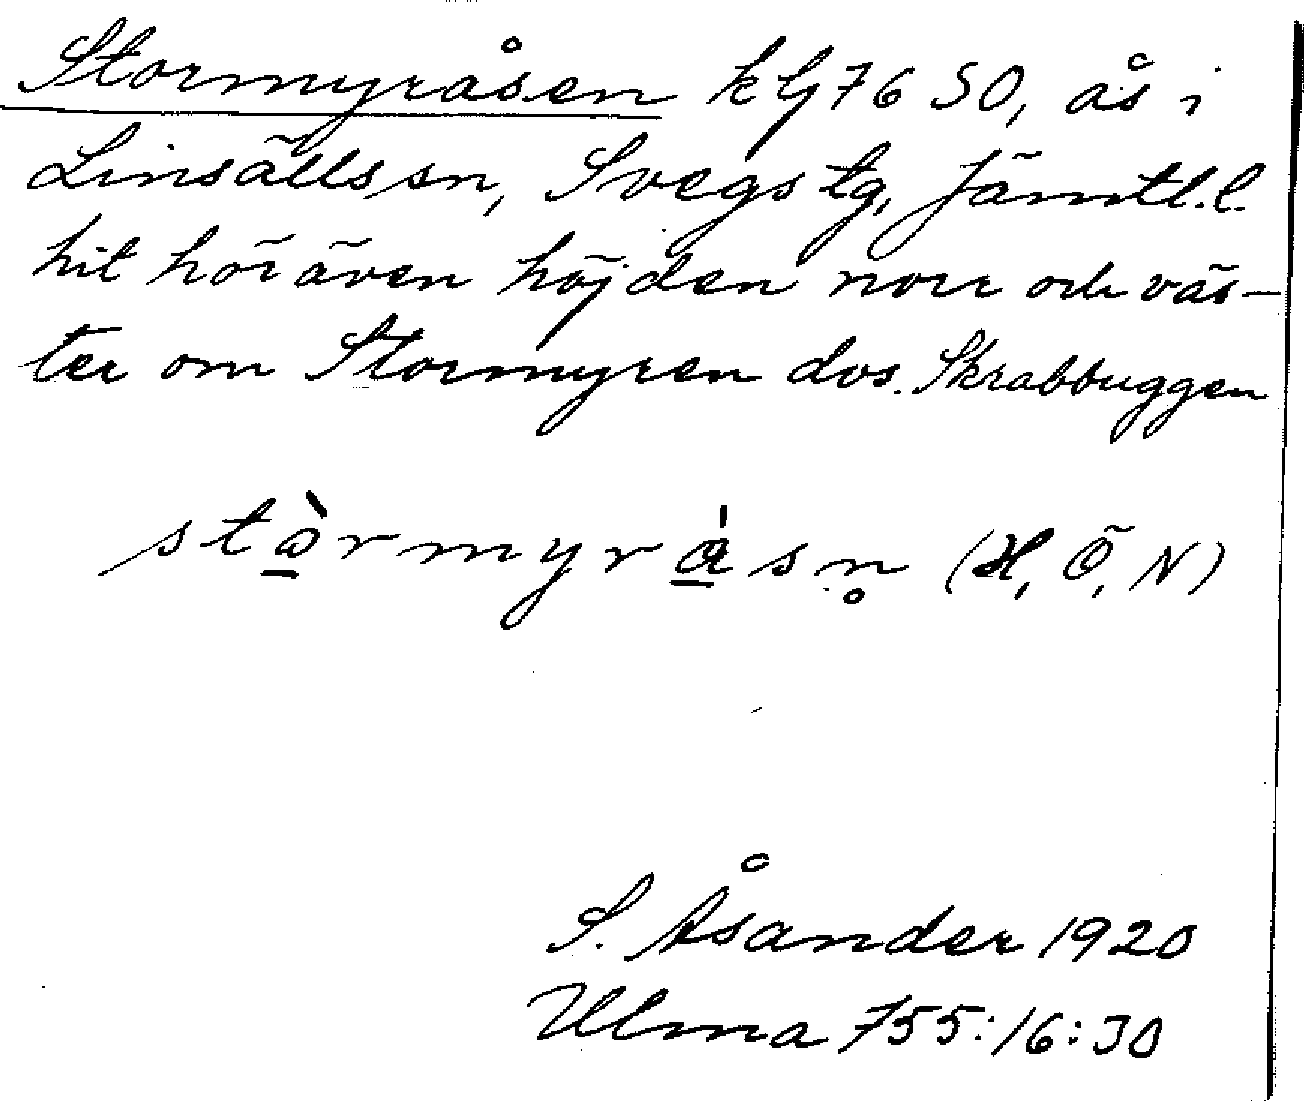 Stormyråsen kG7650, ås i
Linsälls sn, Svegs tg, Jämtl.l.
hit hör även höjden norr och väs-
ter om Stormyren dvs. Skrabbuggen
stɔ̠̀rmyrǻ̠sn̥ (H, Ö, N)
S. Åsander 1920
Ulma 755:16:30